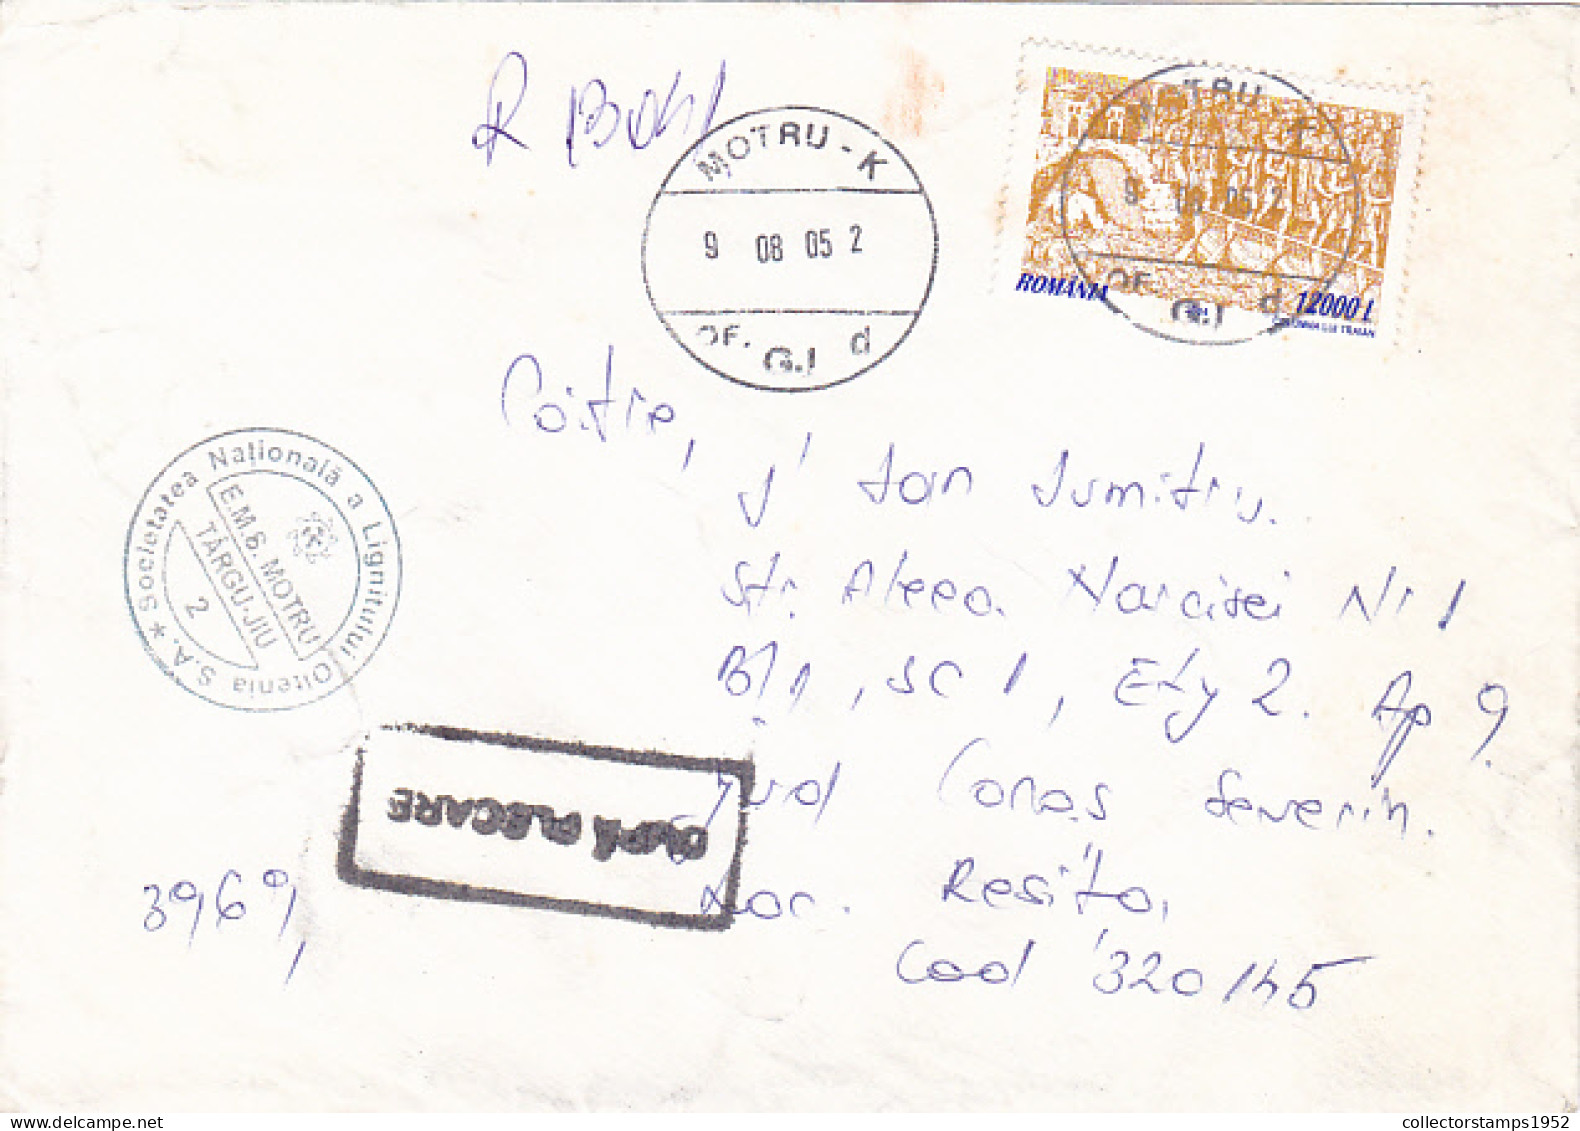 R
MOTRU - K
9 08 05 2
OF. G.I d
TRU
9 08 05 2
OF. G.I d
ROMÂNIA
12000 L
COLUMNA LUI TRAIAN
Către,
Jan Dumitru.
Str. Aleea Narcisei Nr 1
Bl 1, SC 1, Etj 2. Ap 9.
Jud Caras Severin.
Loc. Resița,
Cod 320145
Societatea Națională a Lignitului Oltenia S.A. *
E.M.6. MOTRU
TÂRGU-JIU
2
DUPĂ PLECARE
3969,
collectorstamps1952